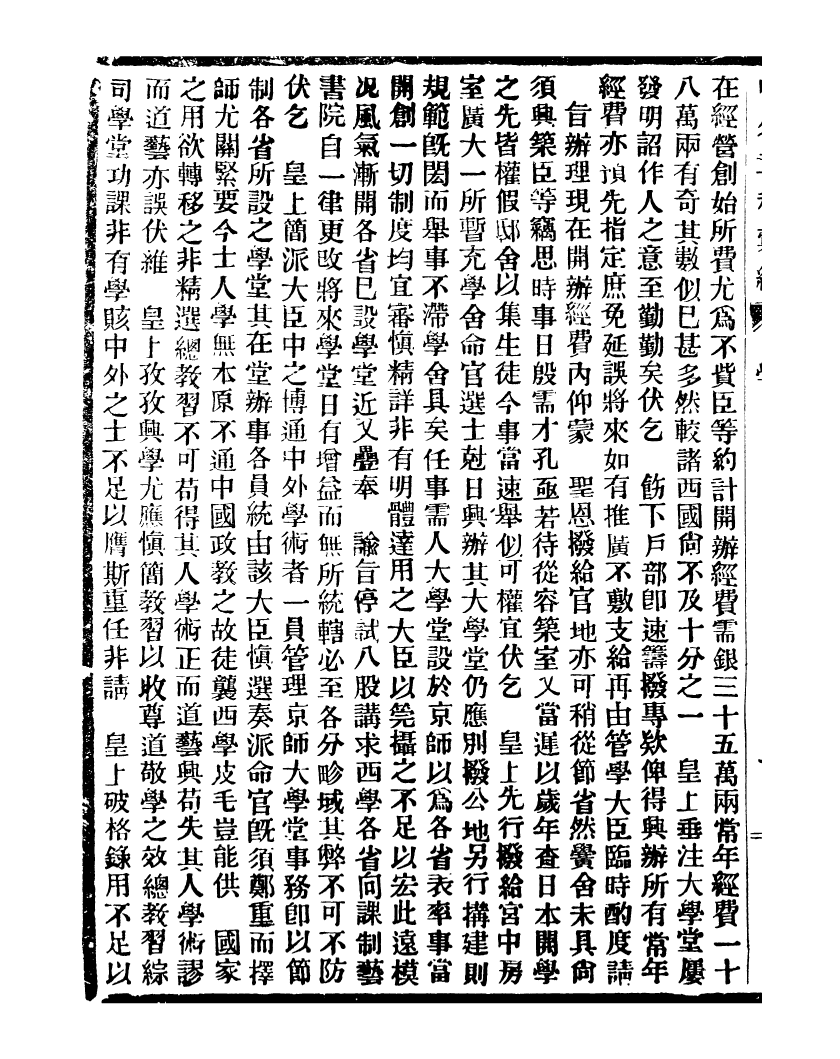 在經營創始所費尤爲不貲臣等約計開辦經費需銀三十五萬兩常年經費一十
八萬兩有奇其數似已甚多然較諸西國尙不及十分之一　皇上垂注大學堂屢
發明詔作人之意至勤勤矣伏乞　飭下戶部卽速籌撥專欵俾得興辦所有常年
經費亦預先指定庶免延誤將來如有推廣不敷支給再由管學大臣臨時酌度請
旨辦理現在開辦經費內仰蒙　聖恩撥給官地亦可稍從節省然黌舍未具尙
須興築臣等竊思時事日殷需才孔亟若待從容築室又當遲以歲年查日本開學
之先皆權假邸舍以集生徒今事當速舉似可權宜伏乞　皇上先行撥給官中房
室廣大一所暫充學舍命官選士尅日興辦其大學堂仍應別撥公地另行搆建則
規範旣閎而舉事不滯學舍具矣任事需人大學堂設於京師以爲各省表率事當
開創一切制度均宜審愼精詳非有明體達用之大臣以筦攝之不足以宏此遠模
况風氣漸開各省已設學堂近又疊奉　諭旨停試八股講求西學各省向課制藝
書院自一律更改將來學堂日有增益而無所統轄必至各分畛域其弊不可不防
伏乞　皇上簡派大臣中之博通中外學術者一員管理京師大學堂事務卽以節
制各省所設之學堂其在堂辦事各員統由該大臣愼選奏派命官旣須鄭重而擇
師尤關緊要今士人學無本原不通中國政敎之故徒襲西學皮毛豈能供　國家
之用欲轉移之非精選總敎習不可苟得其人學術正而道藝興苟失其人學術謬
而道藝亦誤伏維　皇上孜孜興學尤應愼簡敎習以收尊道敬學之效總敎習綜
司學堂功課非有學賅中外之士不足以膺斯重任非請　皇上破格錄用不足以